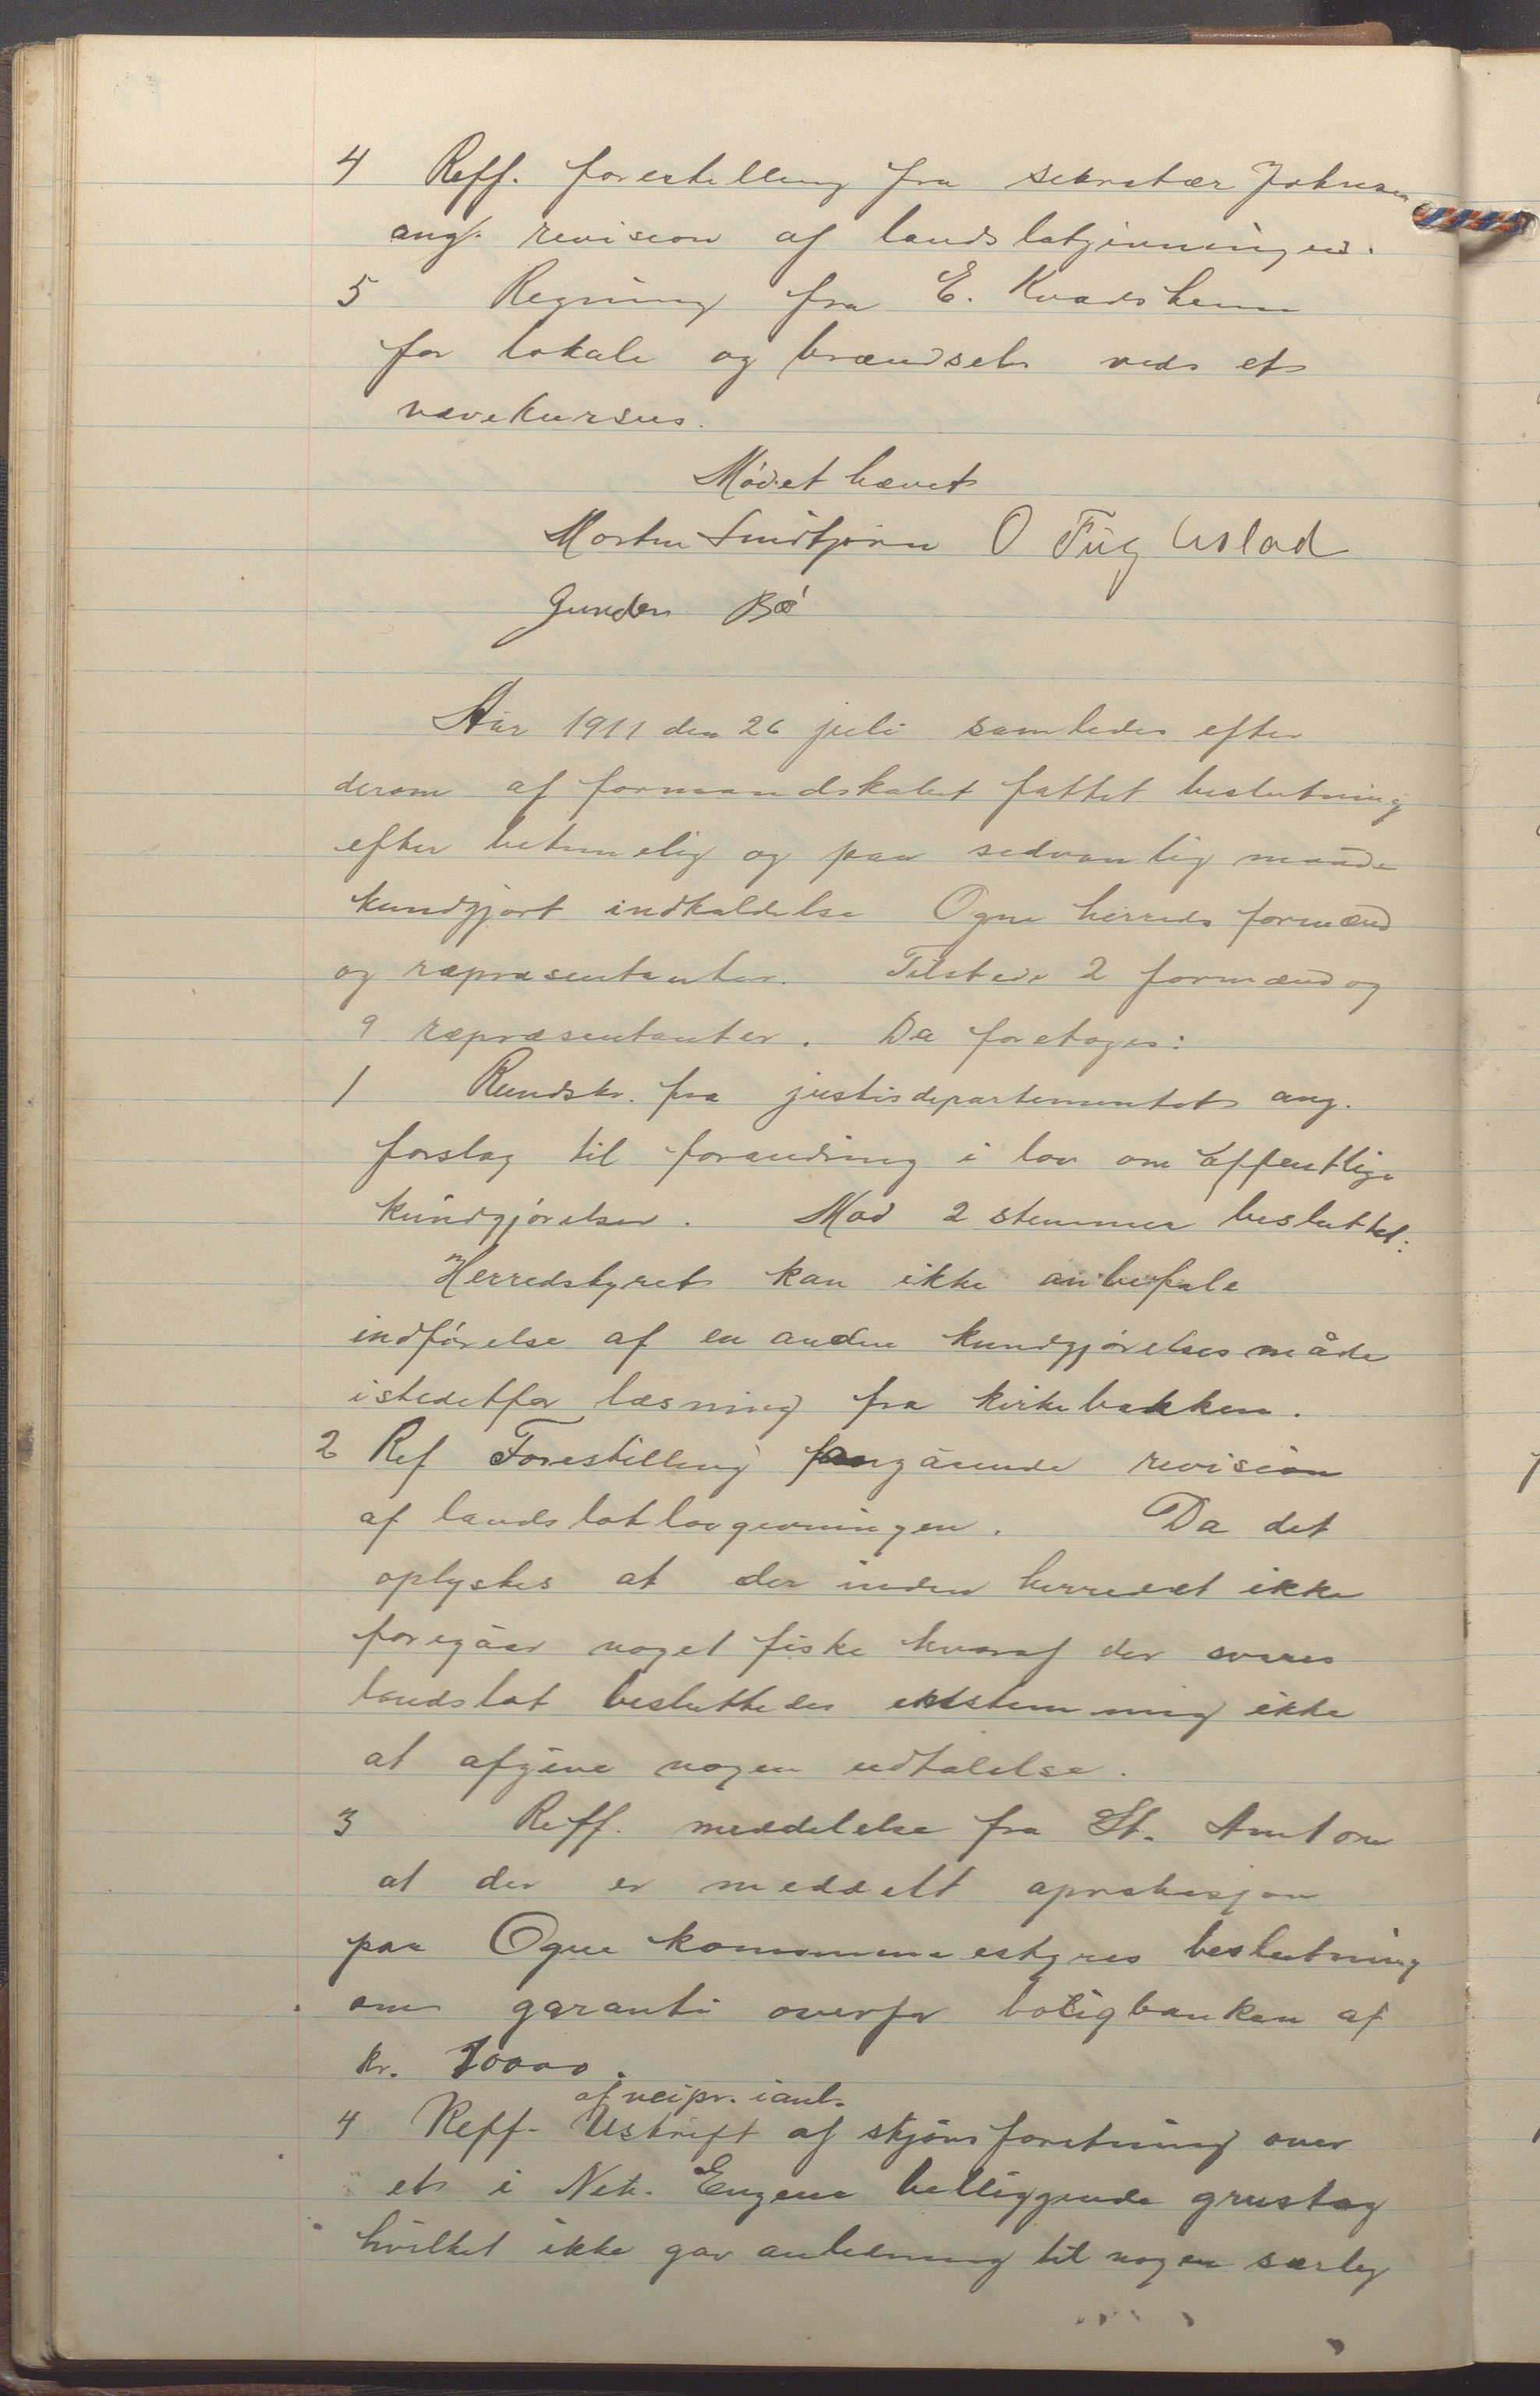 4 Reff. forestilling fra sekretær Johnsen
ang. revision af landslotgivningen.
5 Regning fra E. Kvadsheim
for lokale og brændsel veds et
vævekursus.
Mødet hævet
Morten Smidtjørn O Fuglestad
Gunder Bø
Aar 1911 den 26 juli samledes efter
derom af formandskabet fattet beslutning
efter betimelig og paa sedvanlig maade
kundgjort indkaldelse Ogne herreds formænd
og repræsentanter. Tilstede 2 formænd og
9 repræsentanter. Da foretoges:
1 Rundskr. fra justisdepartementet ang.
forslag til forandring i lov om offentlige
kundgjørelser. Mod 2 stemmer besluttet:
"Herredstyret kan ikke anbefale
indførelse af en anden kundgjørelsesmåde
istedetfor læsning fra kirkebakken.
2 Ref Forestilling angående revision
af landslotlovgivningen. Da det
oplystes at der inden herredet ikke
foregåar noget fiske hvoraf der svares
landslot besluttedes enstemmig ikke
at afgive nogen udtalelse.
3 Reff. meddelelse fra St. Amt om
at der er meddelt aprobasjon
paa Ogne kommunestyres beslutning
om garanti overfor boligbanken af
kr. 10000.
af veipr. iaml.
4 Reff. Utskrift af skjønsforetning over
et i Net. Eugene belliggende grustag
hvilket ikke gav anledning til nogen særleg